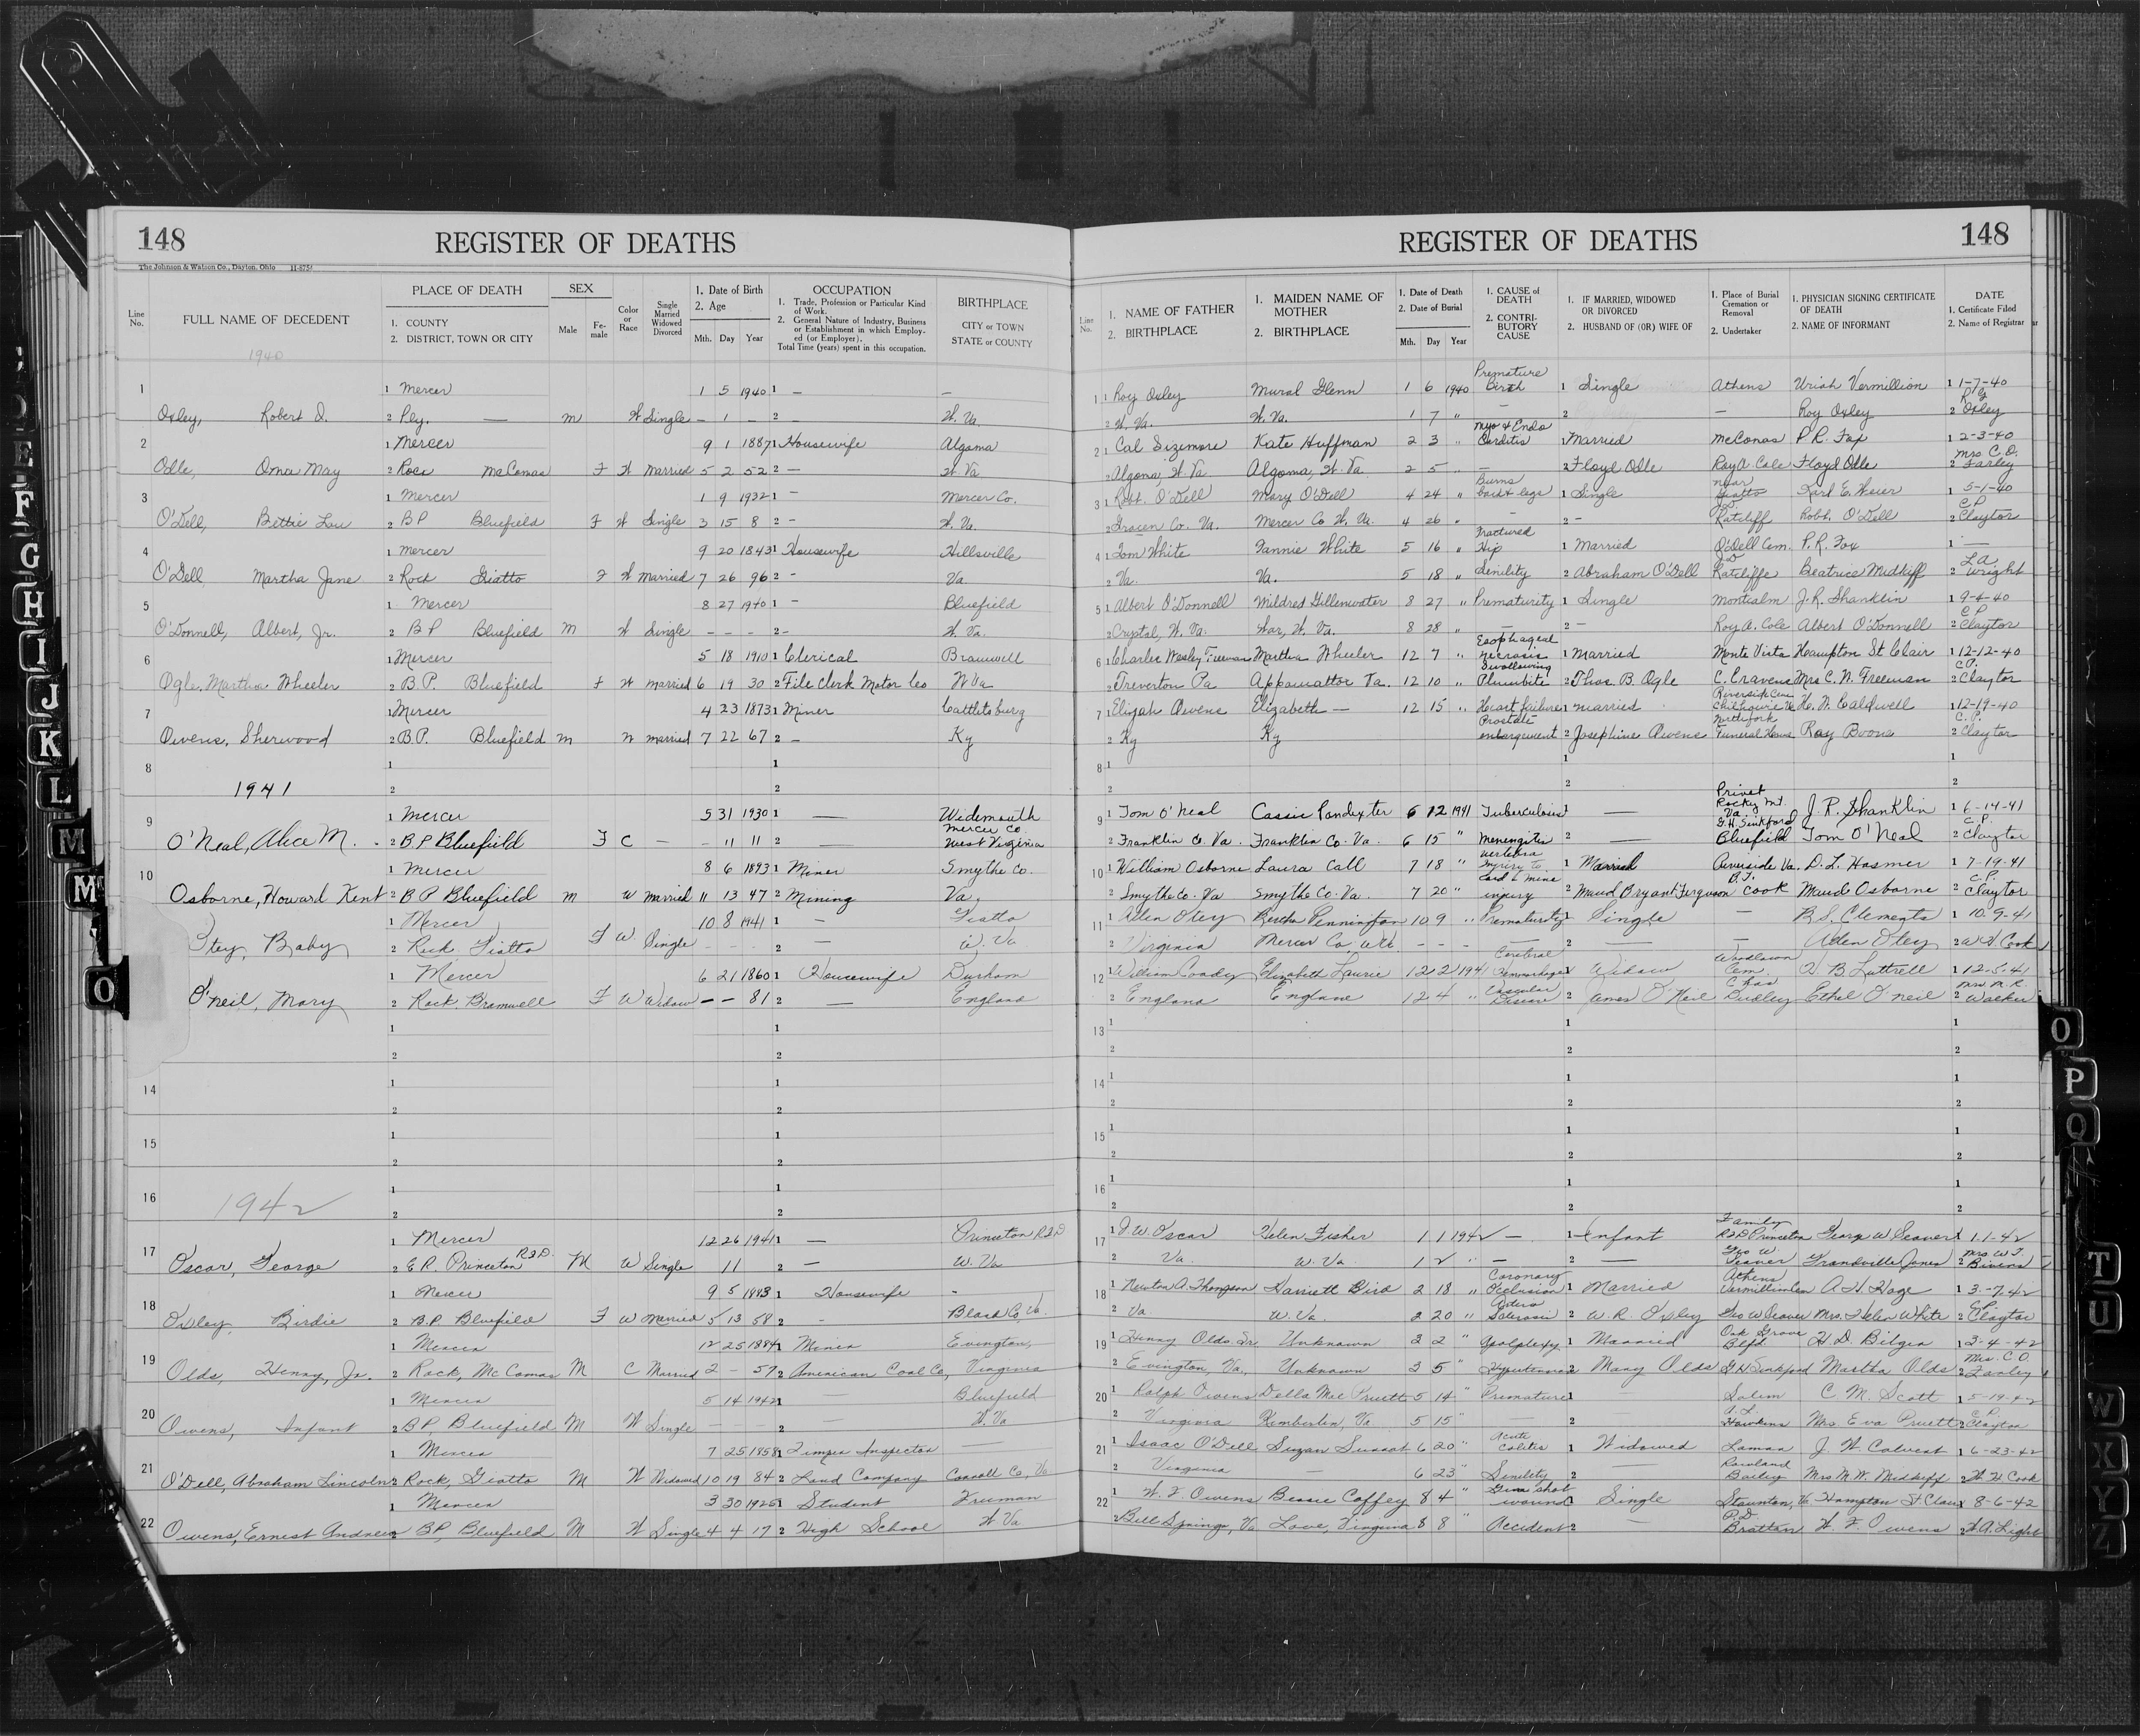 148
REGISTER OF DEATHS
The Johnson & Watson Co., Dayton, Ohio
Line No.
FULL NAME OF DECEDENT
PLACE OF DEATH
1. COUNTY
2. DISTRICT, TOWN OR CITY
SEX
Male
Female
Color or Race
Single Married Widowed Divorced
1. Date of Birth
2. Age
Mth. Day Year
OCCUPATION
1. Trade, Profession or Particular Kind of Work.
2. General Nature of Industry, Business or Establishment in which Employed (or Employer).
Total Time (years) spent in this occupation.
BIRTHPLACE
CITY or TOWN
STATE or COUNTY
1940
1 1 Mercer 1 5 1940 1 — —
Oxley, Robert D. 2 Ply. — M W Single — 1 — 2 W. Va.
2 1 Mercer 9 1 1887 1 Housewife Algoma
Odle, Oma May 2 Rock McComas F W Married 5 2 52 2 — W. Va.
3 1 Mercer 1 9 1932 1 — Mercer Co.
O'Dell, Bettie Lou 2 BP Bluefield F W Single 3 15 8 2 - W. Va.
4 1 Mercer 9 20 1843 1 Housewife Hillsville
O'Dell Martha Jane 2 Rock Giatto F W Married 7 26 96 2 - Va.
5 1 Mercer 8 27 1940 1 - Bluefield
O'Donnell, Albert, Jr. 2 BP Bluefield M W Single - - - 2 - W. Va.
6 1 Mercer 5 18 1910 1 Clerical Bramwell
Ogle, Martha Wheeler 2 B.P. Bluefield F W Married 6 19 30 2 File Clerk Motor Co W Va
7 1 Mercer 4 23 1873 1 Miner Cattletsburg
Owens, Sherwood 2 B.P. Bluefield M W Married 7 22 67 2 — Ky
8 1 1
1941 2 2
9 1 Mercer 5 31 1930 1 — Widemouth Mercer Co.
O'Neal, Alice M. 2 B P Bluefield F C — - 11 11 2 — West Virginia
10 1 Mercer 8 6 1893 1 Miner Smythe Co.
Osborne, Howard Kent 2 B P Bluefield M W Married 11 13 47 2 Mining Va.
1 Mercer 10 8 1941 1 — Giatto
Otey, Baby 2 Rock Giatto F W Single - - - 2 — W. Va
1 Mercer 6 21 1860 1 Housewife Durham
O'neil, Mary 2 Rock Bramwell F W Widow - - 81 2 — England
1 1
2 2
14 1 1
2 2
15 1 1
2 2
16 1 1
1942 2 2
17 1 Mercer 12 26 1941 1 — Princeton R.F.D
Oscar, George 2 E.R. Princeton R.F.D. M W Single 11 2 — W. Va
18 1 Mercer 9 5 1883 1 Housewife -
Oxley Birdie 2 B.P. Bluefield F W Married 5 13 58 2 - Bland Co Va.
19 1 Mercer 12 25 1884 1 Miner Evington,
Olds, Henry, Jr. 2 Rock, McComas M C Married 2 - 57 2 American Coal Co, Virginia
20 1 Mercer 5 14 1942 1 — Bluefield
Owens, Infant 2 B.P. Bluefield M W Single - - - 2 — W. Va
21 1 Mercer 7 25 1858 1 Timber Inspector —
O'Dell, Abraham Lincoln 2 Rock, Giatto M W Widowed 10 19 84 2 Land Company Carroll Co, Va.
22 1 Mercer 3 30 1925 1 Student Freeman
Owens, Ernest Andrew 2 B.P. Bluefield M W Single 4 4 17 2 High School W Va
REGISTER OF DEATHS
148
Line No.
1. NAME OF FATHER
2. BIRTHPLACE
1. MAIDEN NAME OF MOTHER
2. BIRTHPLACE
1. Date of Death
2. Date of Burial
Mth. Day Year
1. CAUSE of DEATH
2. CONTRIBUTORY CAUSE
1. IF MARRIED, WIDOWED OR DIVORCED
2. HUSBAND OF (OR) WIFE OF
1. Place of Burial Cremation or Removal
2. Undertaker
1. PHYSICIAN SIGNING CERTIFICATE OF DEATH
2. NAME OF INFORMANT
DATE
1. Certificate Filed
2. Name of Registrar
1 1 Roy Oxley Mural Glenn 1 6 1940 Premature Birth 1 Single Athens Uriah Vermillion 1 1-7-40
2 W. Va. W. Va. 1 7 " — 2 — Roy Oxley 2 Oxley
2 1 Cal Sizemore Kate Huffman 2 3 " Myo & Endo Carditis 1 Married McComas P. R. Fox 1 2-3-40
2 Algoma, W. Va Algoma, W. Va 2 5 " — 2 Floyd Odle Roy A. Cole Floyd Odle 2 Mrs C.O. Farley
3 1 Robt. O'Dell Mary O'Dell 4 24 " Burns back & legs 1 Single near Giatto Karl E. Weier 1 5-1-40
2 Co. Va. Mercer Co W. Va. 4 26 " - 2 - J.D. Ratcliff Robt. O'Dell 2 C P Claytor
4 1 Tom White Fannie White 5 16 " Fractured Hip 1 Married O'Dell Cem. P. R. Fox 1 —
2 Va. Va. 5 18 " Senility 2 Abraham O'Dell J D Ratcliffe Beatrice Midkiff 2 L A Wright
5 1 Albert O'Donnell Mildred Gillenwater 8 27 " Prematurity 1 Single Montcalm J. R. Shanklin 1 9-4-40
2 Crystal, W. Va. War, W. Va. 8 28 " — 2 - Roy A. Cole Albert O'Donnell 2 C P Claytor
6 1 Charles Wesley Freeman Martha Wheeler 12 7 " Esophageal necrosis 1 Married Monte Vista Hampton St Clair 1 12-12-40
2 Treverton Pa Appomattox Va. 12 10 " Swallowing 2 Thos. B. Ogle C. Cravens Mrs C. N. Freeman 2 C.P. Claytor
7 1 Elijah Owens Elizabeth — 12 15 " Heart failure 1 Married Riverside Cem H. W. Caldwell 1 12-19-40
2 Ky Ky Prostate enlargement 2 Josephine Owens Northfork Funeral Home Ray Boone 2 C.P. Claytor
8 1 1 1
2 2 2
9 1 Tom O'Neal Cassie Pondexter 6 12 1941 Tuberculous 1 — Privet Rocky Mt. Va. J. R. Shanklin 1 6-14-41
2 Franklin Co. Va. Franklin Co. Va. 6 15 " Menengitis 2 — G. H. Sinkford Bluefield Tom O'Neal 2 C.P. Claytor
10 1 William Osborne Laura Call 7 18 " vertebra injury to cord 1 Married Riverside Va. D. L. Hosmer 1 7-19-41
2 Smythe Co. Va Smythe Co. Va. 7 20 " mine injury 2 Maud Bryant Ferguson Cook Maud Osborne 2 C.P. Claytor
11 1 Aden Otey Bertha Pennington 10 9 " Prematurity 1 Single — B. S. Clements 1 10-9-41
2 Virginia Mercer Co W Va - - - — 2 — — Aden Otey 2 W H Cook
12 1 William Elizabeth Laurie 12 2 1941 Cerebral Hemorrhage 1 Widow Woodlawn Cem. B Luttrell 1 12-5-41
2 England England 12 4 " Vascular Disease 2 James O'Neil Chas Dudley Ethel O'neil 2 Mrs. M. K. Walker
13 1 1 1
2 2 2
14 1 1 1
2 2 2
15 1 1 1
2 2 2
16 1 1 1
2 2 2
17 1 Oscar Helen Fisher 1 1 1942 — 1 Infant Family RFD Princeton George W Seaver 1 1-1-42
2 Va. W. Va. 1 2 " — 2 — Geo W Seaver Grandville Jones 2 Mrs. W. T. Bivens
18 1 Newton A. Thompson Harriett Bird 2 18 " Coronary Occlusion 1 Married Athens Vermillion Cem 1 3-7-42
2 Va. W. Va. 2 20 " Sclerosis 2 W. R. Oxley Geo W Seaver Mrs. Helen White 2 C.P. Claytor
19 1 Henry Olds Sr. Unknown 3 2 " Apoplexy 1 Married Oak Grove Blfd. H. D. Bilgin 1 3-4-42
2 Evington, Va., Unknown 3 5 " Hypertension 2 Mary Olds G H Sinkford Martha Olds 2 Mrs. C.O. Farley
20 1 Ralph Owens Della Mae Pruett 5 14 " Premature 1 — Salem C. M. Scott 1 5-19-42
2 Virginia Kimberlin, Va. 5 15 " — 2 — Hawkins Mrs Eva Pruett 2 C.P. Claytor
21 1 Isaac O'Dell Suzan 6 20 " Acute Colitis 1 Widowed J. W. Calvert 1 6-23-42
2 Virginia — 6 23 " Senility 2 — Rowland Bailey Mrs M. W. Midkiff 2 W H Cook
22 1 W. F. Owens Bessie Coffey 8 4 " Gun Shot wound 1 Single Staunton, Va. Hampton St Clair 1 8-6-42
2 Bell Springs, Va Love, Virginia 8 8 " Accident 2 — P.D. Brattan W. F. Owens 2 Light
F
G
H
I
J
K
L
M
O
O
P
Q
T
U
W
X
Y
Z